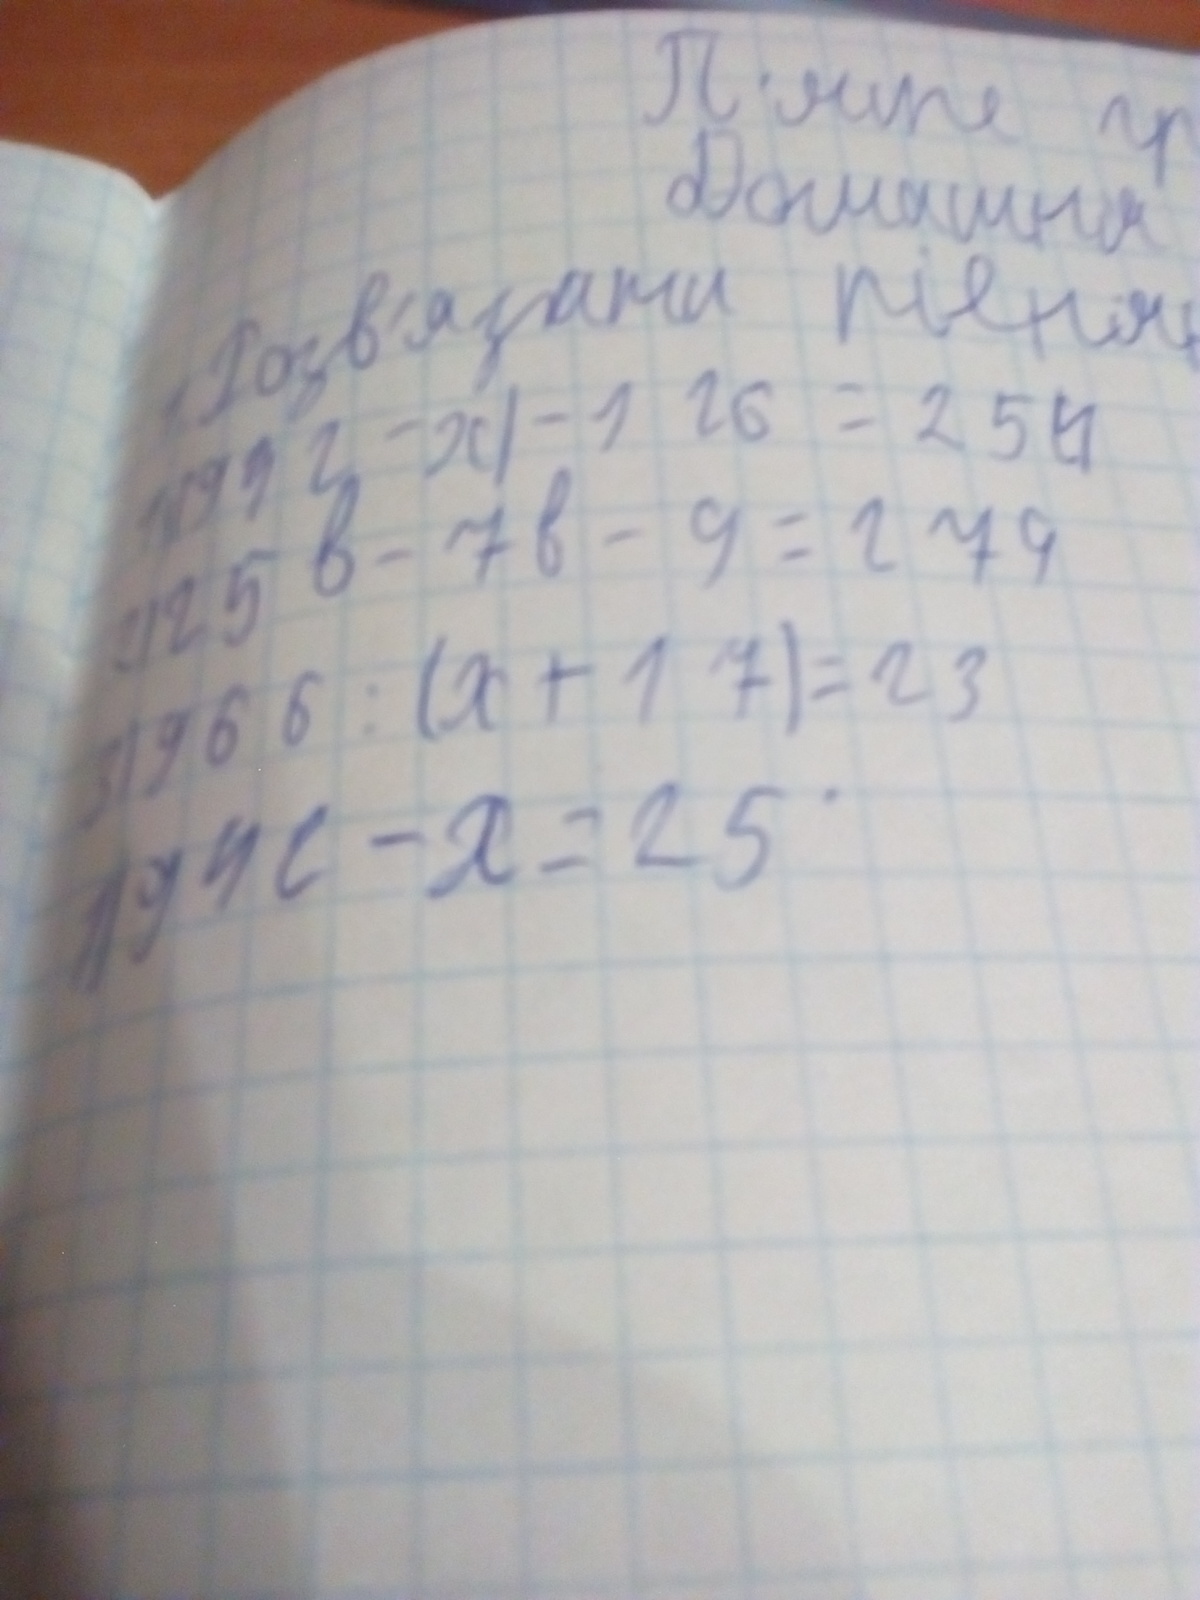 П'яте гр
Домашня
Розв'язати рівнян
-x)-126=254
2)25в-7в-9=279
3)966:(x+17)=23
1)942-x=25